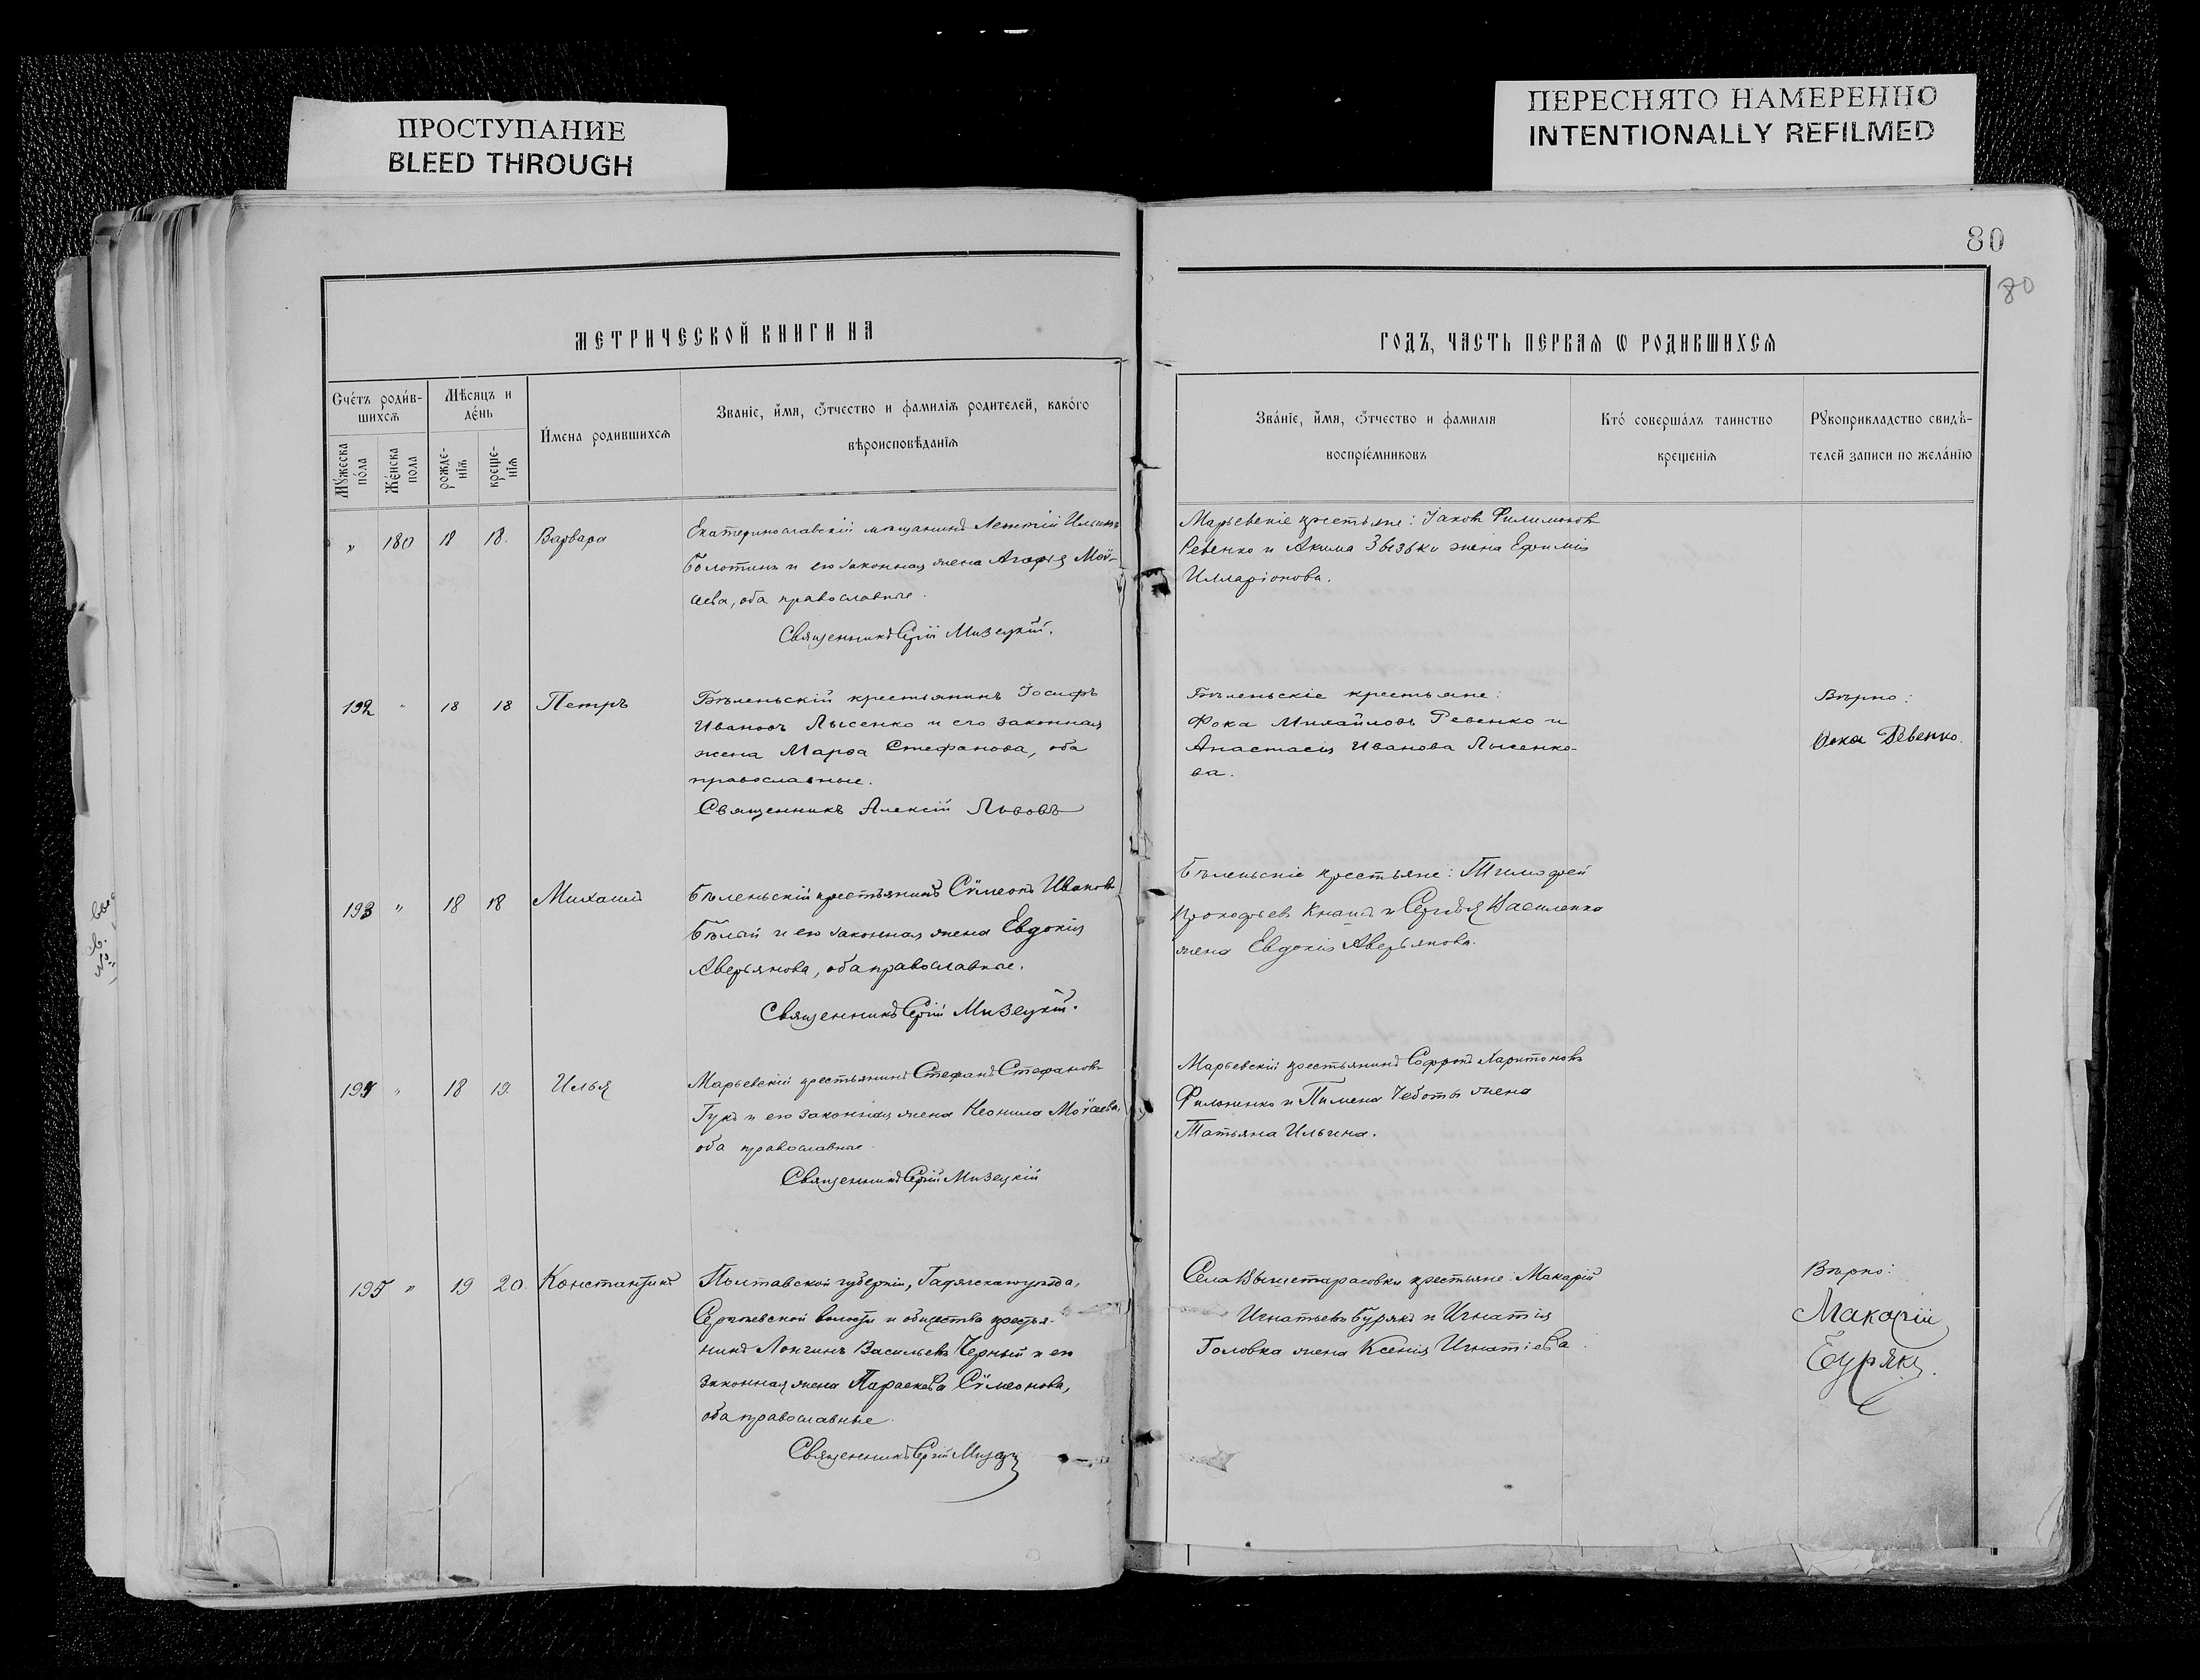 ПРОСТУПАНИЕ
BLEED THROUGH
ПЕРЕСНЯТО НАМЕРЕННО
INTENTIONALLY REFILMED
80
80
МЕТРИЧЕСКОЙ КНИГИ НА
ГОДЪ, ЧАСТЬ ПЕРВАЯ Ѡ РОДИВШИХСЯ
Сче́тъ роди́в-
шихсѧ
Мѣ́сяцъ и
де́нь
И́мена родившихсѧ
Званіе, и҆́мя, ѻ҆́тчество и фамиліѧ родителей, како́го
вѣроисповѣданіѧ
Мꙋ́жеска
по́ла
Же́нска
пола
рожде-
ніѧ
креще-
ніѧ
Зва́ніе, и҆́мя, ѻ҆́тчество и фамиліѧ
воспріе́мниковъ
Кто́ совершалъ таинство
крещеніѧ
Рꙋкоприкладство свидѣ-
телей записи по жела́нію
" 180 18 18. Варвара
Екатеринославскій мѣщанинъ Леонтій
Болотинъ и его законная жена Агафія Мої-
сеева, оба православные.
Священникъ Сергій Мизецкій.
Марьевскіе крестьяне: Іаковъ Филимоновъ
Ревенко и Акима жена Евфимія
Илларіонова.
192 " 18 18 Петръ
Бѣленьскій крестьянинъ Іосифъ
Ивановъ Лысенко и его законная
жена Марѳа Стефанова, оба
православные.
Священникъ Алексій Львовъ
Бѣленьскіе крестьяне:
Фока Михайловъ Ревенко и
Анастасія Иванова Лысенко-
ва.
Вѣрно:
Фока Ревенко.
193 " 18 18 Михаилъ
Бѣленьскій крестьянинъ Сѵмеонъ Ивановъ
Бѣлый и его законная жена Евдокія
Аверьянова, оба православные.
Священникъ Сергій Мизецкій.
Бѣленьскіе крестьяне: Тимофей
Прокофьевъ и Сергѣя Василенко
жена Евдокія Аверьянова.
194 " 18 19. Илья
Марьевскій крестьянинъ Стефанъ Стефановъ
Гукъ и его законная жена Неонила Моѵсеева,
оба православные.
Священникъ Сергій Мизецкій
Марьевскій крестьянинъ Софронъ Харитоновъ
и Пимена Чеботы жена
Татьяна Ильина.
195 " 19 20. Константинъ
Полтавской губерніи, Гадячскаго уѣзда,
Сергіевской волости и общества крестья-
нинъ Лонгинъ Васильевъ Черный и его
законная жена Параскева Сѵмеонова,
оба православные.
Священникъ Сергій
Села Вышетарасовки крестьяне: Макарій
Игнатьевъ Бурякъ и Игнатія
Головка жена Ксенія Игнатіева.
Вѣрно:
Макарій
Бурякъ.